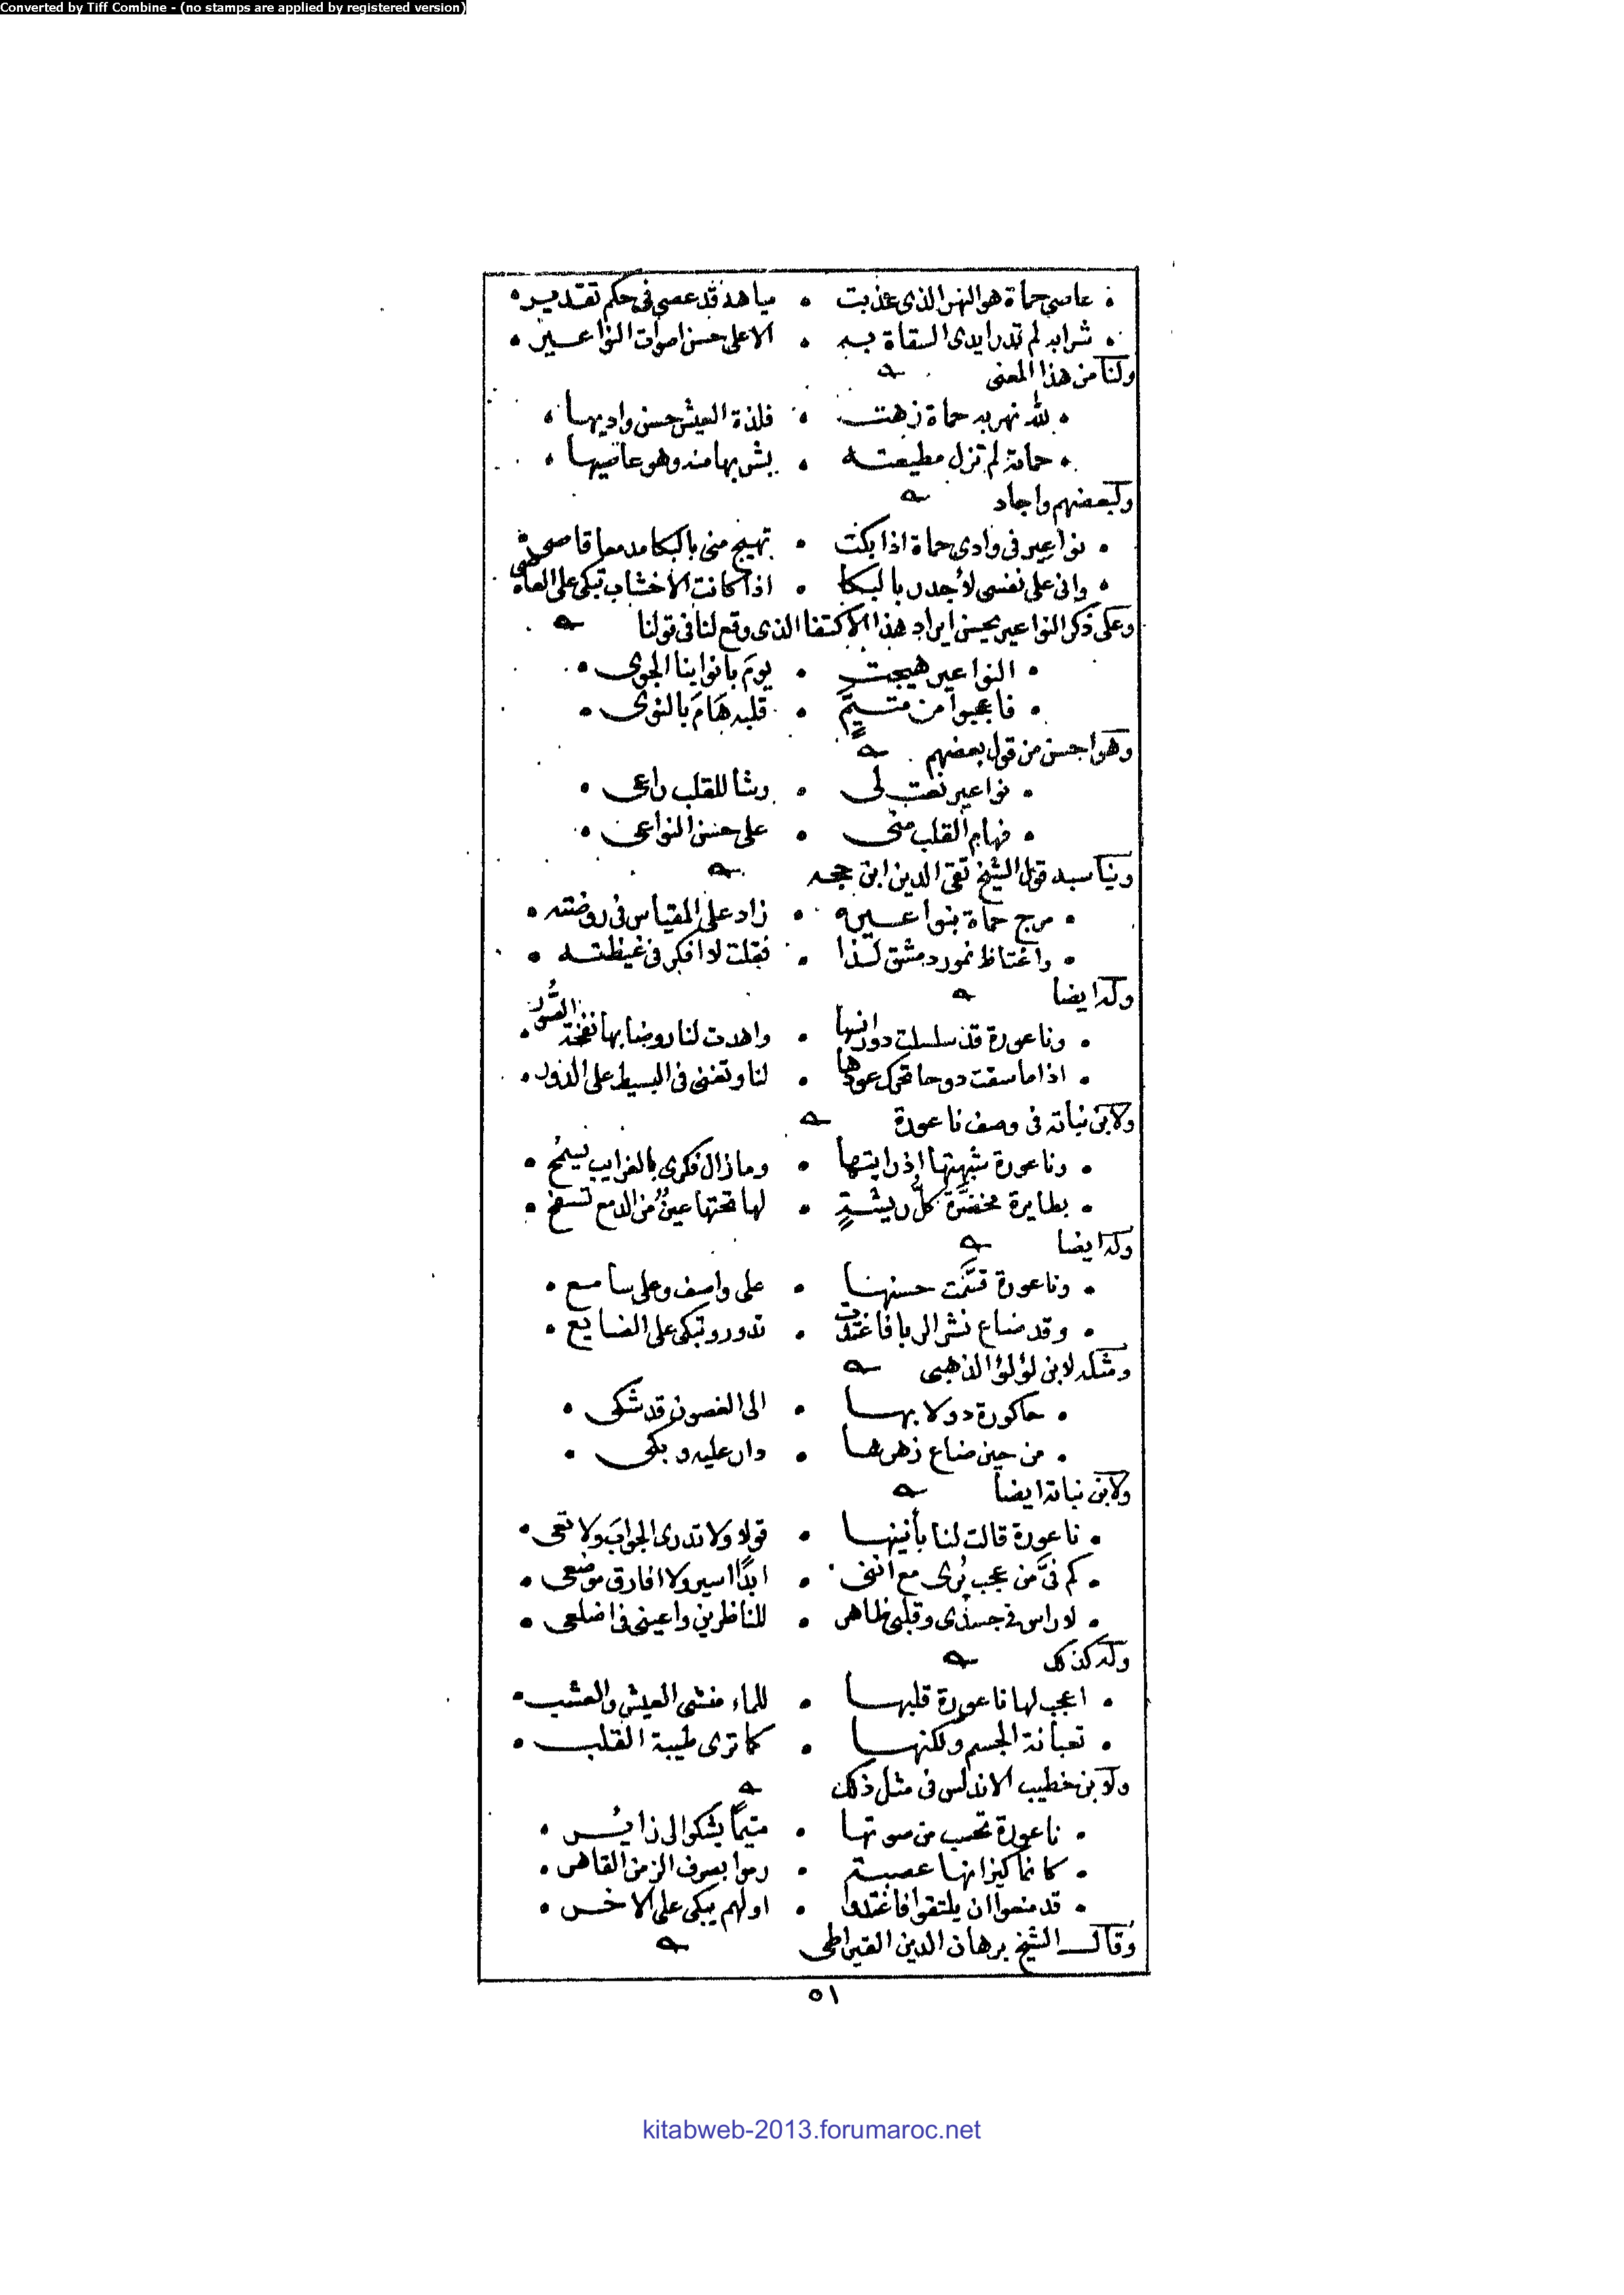 Converted by Tiff Combine - (no stamps are applied by registered version)
عاصي حماة هو النهر الذى عذبت • مياهه قد عصى فى حكم تقديره
شرابه لم تدر ايدى السقاة به • الا على حسن اصوات النواعير
ولنا من هذا المعنى
لله نهر به حماة زهت • فلذة العيش حسن واديها
حماة لم تزل مطيعته • يشربها منه وهو عاصيها
ولبعضهم واجاد
نواعير فى وادى حماة اذا بكت • تهيج منى بالبكا مدمعا قاصى
وانى على نفسى لأجدر بالبكا • اذا كانت الاخشاب تبكى على العاصى
وعلى ذكر النواعير يحسن ايراد هذا الاكتفا الذى وقع لنا فى قولنا
النواعير هيجت • يومَ بانوا بنا الجوى
فاعجبوا من متيمٍّ • قلبه هَامَ بالنوى
وهو احسن من قول بعضهم
نواعير نعت لى • رشا للقلب راعى
فهام القلب منى • على حسن النواعى
ويناسبه قول الشيخ تقى الدين ابن حجه
مرج حماة بنواعيره • زاد على المقياس فى روضته
واغتاظ نمرود دمشق لذا • فقلت لا افكر فى غيظته
وله ايضا
وناعورة قد سلسلت دورانها • واهدت لنا روضا بها نفخة الصُّور
اذا ما سقت دوحا تحرك عودها • لنا وتغنى فى البسيط على الدور
ولابن نباته فى وصف ناعورة
وناعورة شبهتها إذ رايتها • وما زال فكرى بالغرايب يسمُح
بطايرة مخضرَّة كلَّ ريشةٍ • لها تحتها عينٌ من الدمع تسفح
وله ايضا
وناعورة قسَّمت حسنها • على واصف وعلى سامع
وقد ضاع نشر الربا فاغتدت • تدور وتبكى على الضايع
ومثله لابن لؤلؤ الذهبى
حاكورة دولابها • الى الغصون قد شكى
من حين ضاع زهرها • دار عليه وبكى
ولابن نباتة ايضا
ناعورة قالت لنا بأنينها • قولا ولا تدرى الجوابَ ولا تعى
كم فىَّ من عجب يُرى مع اننى • ابدًا اسير ولا افارق موضعى
لا راس فى جسدى وقلبى ظاهر • للناظرين واعينى فى اضلعى
وله كذلك
اعجب لها ناعورة قلبها • للماء منشى العيش والعشب
تعبانة الجسم ولكنها • كما ترى طيبة القلب
ولابن خطيب الاندلس فى مثل ذلك
ناعورة تحسب من صوتها • متيمًا يشكو الى زائر
كانما كيزانها عصبة • رموا بصرف الزمن القاهر
قد منعوا ان يلتقوا فاغتدوا • اولهم يبكى على الاخر
وقال الشيخ برهان الدين القيراطى
٥١
kitabweb-2013.forumaroc.net